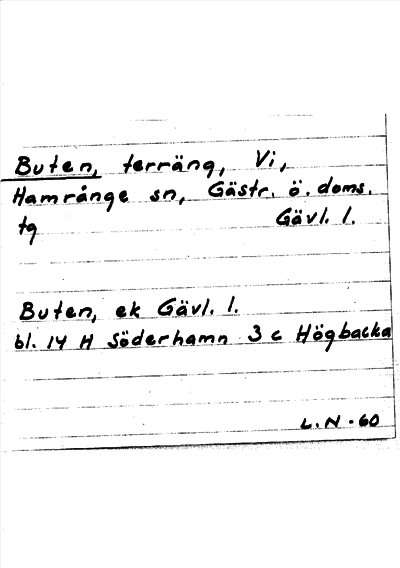 Buten, terräng, Vi,
Hamrånge sn, Gästr. ö. doms.
tg Gävl. l.
Buten, ek Gävl. l.
bl. 14 H Söderhamn 3 c Högbacka
L.N-60